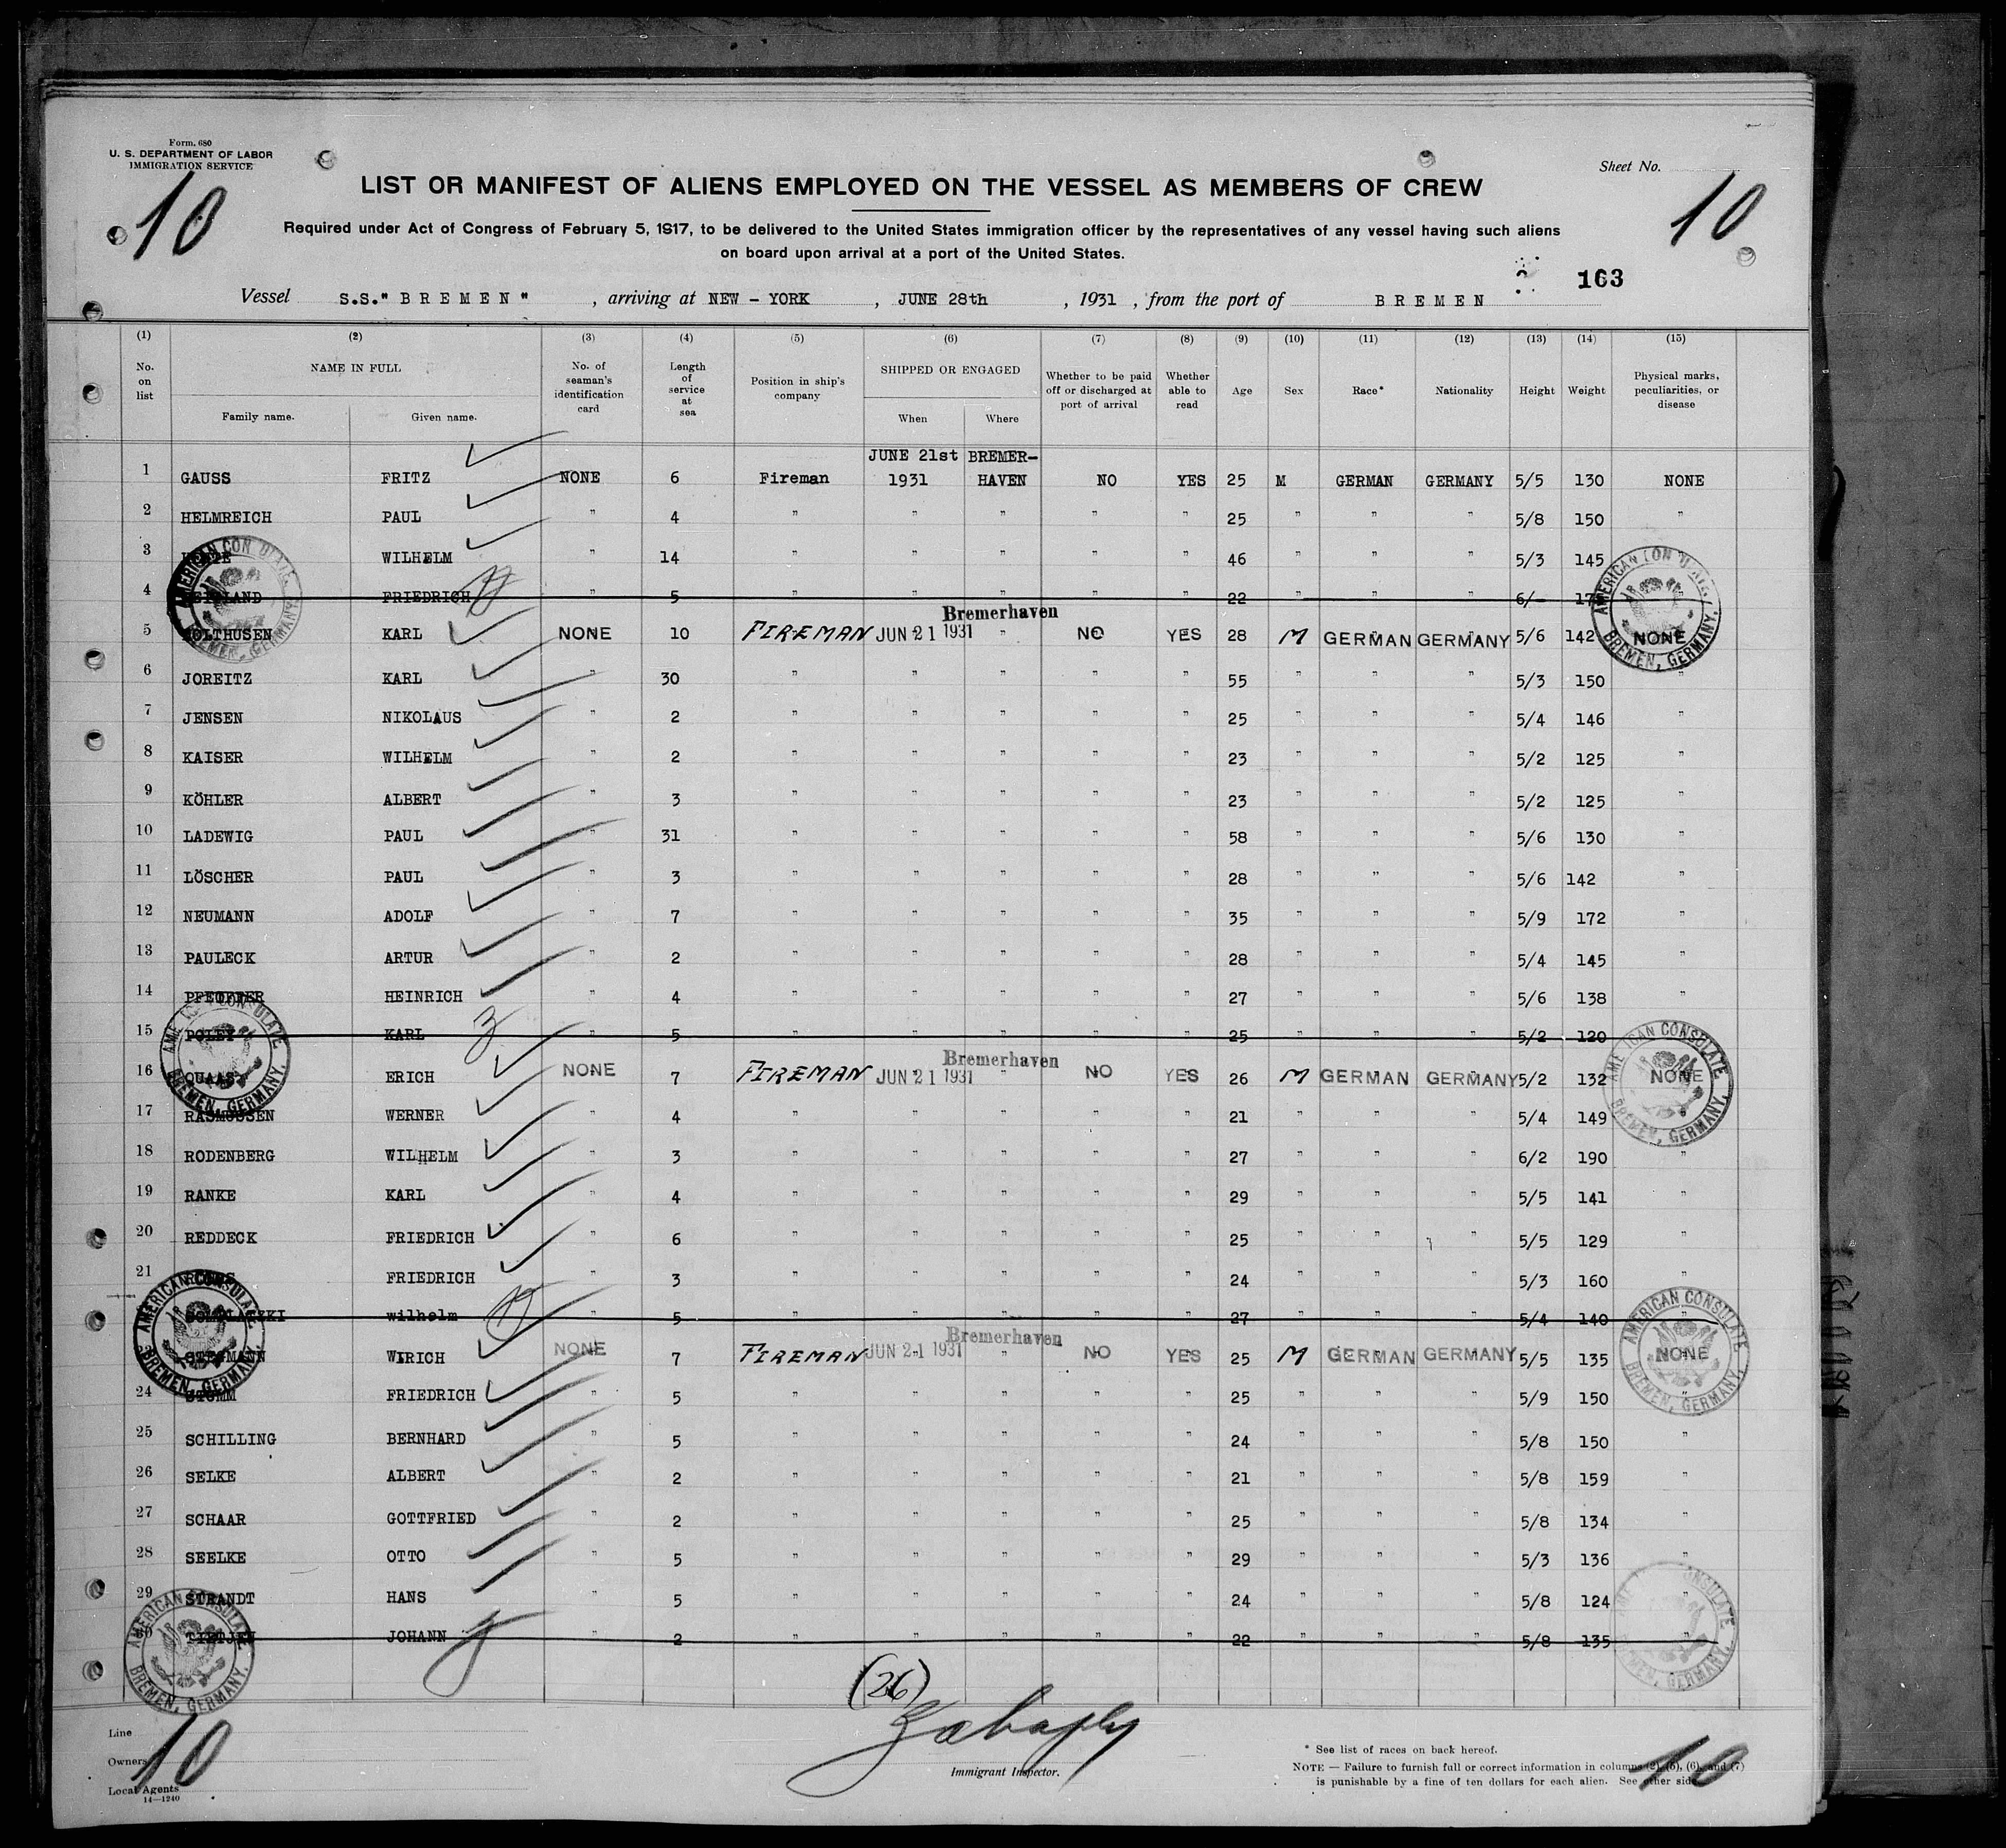 Form. 680
U. S. DEPARTMENT OF LABOR
IMMIGRATION SERVICE
Sheet No.
10
10
LIST OR MANIFEST OF ALIENS EMPLOYED ON THE VESSEL AS MEMBERS OF CREW
Required under Act of Congress of February 5, 1917, to be delivered to the United States immigration officer by the representatives of any vessel having such aliens
on board upon arrival at a port of the United States.
163
Vessel S.S." B R E M E N " , arriving at NEW - YORK , JUNE 28th , 1931 , from the port of B R E M E N
(1) (2) (3) (4) (5) (6) (7) (8) (9) (10) (11) (12) (13) (14) (15)
No. on list NAME IN FULL Family name. Given name. No. of seaman's identification card Length of service at sea Position in ship's company SHIPPED OR ENGAGED When Where Whether to be paid off or discharged at port of arrival Whether able to read Age Sex Race* Nationality Height Weight Physical marks, peculiarities, or disease
JUNE 21st BREMER-
1 GAUSS FRITZ NONE 6 Fireman 1931 HAVEN NO YES 25 M GERMAN GERMANY 5/5 130 NONE
2 HELMREICH PAUL " 4 " " " " " 25 " " " 5/8 150 "
3 WILHELM " 14 " " " " " 46 " " " 5/3 145
4 FRIEDRICH " 5 " " " " " 22 " " " 6/-
Bremerhaven
5 HOLTHUSEN KARL NONE 10 FIREMAN JUN 21 1931 " NO YES 28 M GERMAN GERMANY 5/6 142 NONE
6 JOREITZ KARL " 30 " " " " " 55 " " " 5/3 150 "
7 JENSEN NIKOLAUS " 2 " " " " " 25 " " " 5/4 146 "
8 KAISER WILHELM " 2 " " " " " 23 " " " 5/2 125 "
9 KÖHLER ALBERT " 3 " " " " " 23 " " " 5/2 125 "
10 LADEWIG PAUL " 31 " " " " " 58 " " " 5/6 130 "
11 LÖSCHER PAUL " 3 " " " " " 28 " " " 5/6 142 "
12 NEUMANN ADOLF " 7 " " " " " 35 " " " 5/9 172 "
13 PAULECK ARTUR " 2 " " " " " 28 " " " 5/4 145 "
14 PFEIFFER HEINRICH " 4 " " " " " 27 " " " 5/6 138 "
15 POLEY KARL " 5 " " " " " 25 " " " 5/2 120
Bremerhaven
16 QUAAS ERICH NONE 7 FIREMAN JUN 21 1931 " NO YES 26 M GERMAN GERMANY 5/2 132 NONE
17 RASMUSSEN WERNER " 4 " " " " " 21 " " " 5/4 149
18 RODENBERG WILHELM " 3 " " " " " 27 " " " 6/2 190 "
19 RANKE KARL " 4 " " " " " 29 " " " 5/5 141 "
20 REDDECK FRIEDRICH " 6 " " " " " 25 " " " 5/5 129 "
21 FRIEDRICH " 3 " " " " " 24 " " " 5/3 160 "
wilhelm " 5 " " " " " 27 " " " 5/4 140 "
Bremerhaven
NONE 7 FIREMAN JUN 21 1931 " NO YES 25 M GERMAN GERMANY 5/5 135 NONE
24 STUMM FRIEDRICH " 5 " " " " " 25 " " " 5/9 150 "
25 SCHILLING BERNHARD " 5 " " " " " 24 " " " 5/8 150 "
26 SELKE ALBERT " 2 " " " " " 21 " " " 5/8 159 "
27 SCHAAR GOTTFRIED " 2 " " " " " 25 " " " 5/8 134 "
28 SEELKE OTTO " 5 " " " " " 29 " " " 5/3 136 "
29 STRANDT HANS " 5 " " " " " 24 " " " 5/8 124 "
30 TIETJEN JOHANN " 2 " " " " " 22 " " " 5/8 135 "
AMERICAN CONSULATE, BREMEN, GERMANY.
AMERICAN CONSULATE, BREMEN, GERMANY.
AMERICAN CONSULATE, BREMEN, GERMANY.
AMERICAN CONSULATE, BREMEN, GERMANY.
AMERICAN CONSULATE, BREMEN, GERMANY.
AMERICAN CONSULATE, BREMEN, GERMANY.
AMERICAN CONSULATE, BREMEN, GERMANY.
(26)
Line
Owners
Local Agents
14—1240
10
Immigrant Inspector.
* See list of races on back hereof.
NOTE — Failure to furnish full or correct information in columns (2), (5), (6), and (7)
is punishable by a fine of ten dollars for each alien. See other side.
10